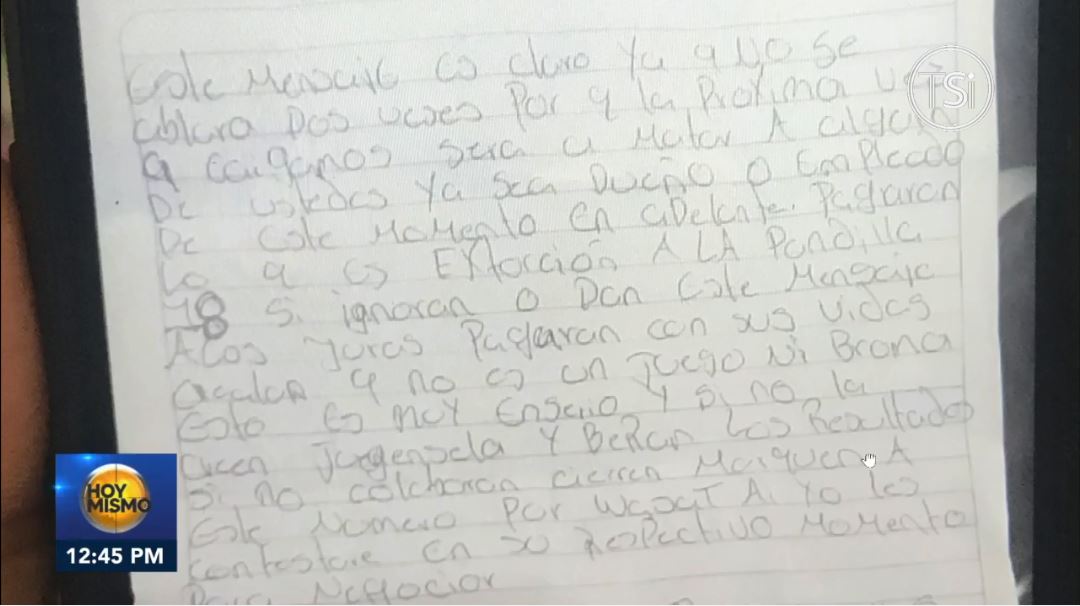 Este Mensaje es claro Ya q No se
ablara Dos veses Por q la Proxima ves
q caigamos sera a Matar A algun
De ustedes Ya sea Dueño o Empleado
De este Momento en adelante. Pagaran
Lo q es Extorción A LA Pandilla
18 si ignoran o Dan Este Mensaje
ALos Juras Pagaran con sus vidas
q no es un Juego Ni Broma
Esto Es muy Enserio Y si no la
creen Juegensela Y Beran Los Resultados
si no colaboran cierren Marquen A
Este Numero Por Wasat A. Yo les
contestare En su Respectivo Momento
Para Negociar
TSi
HOY
MISMO
12:45 PM